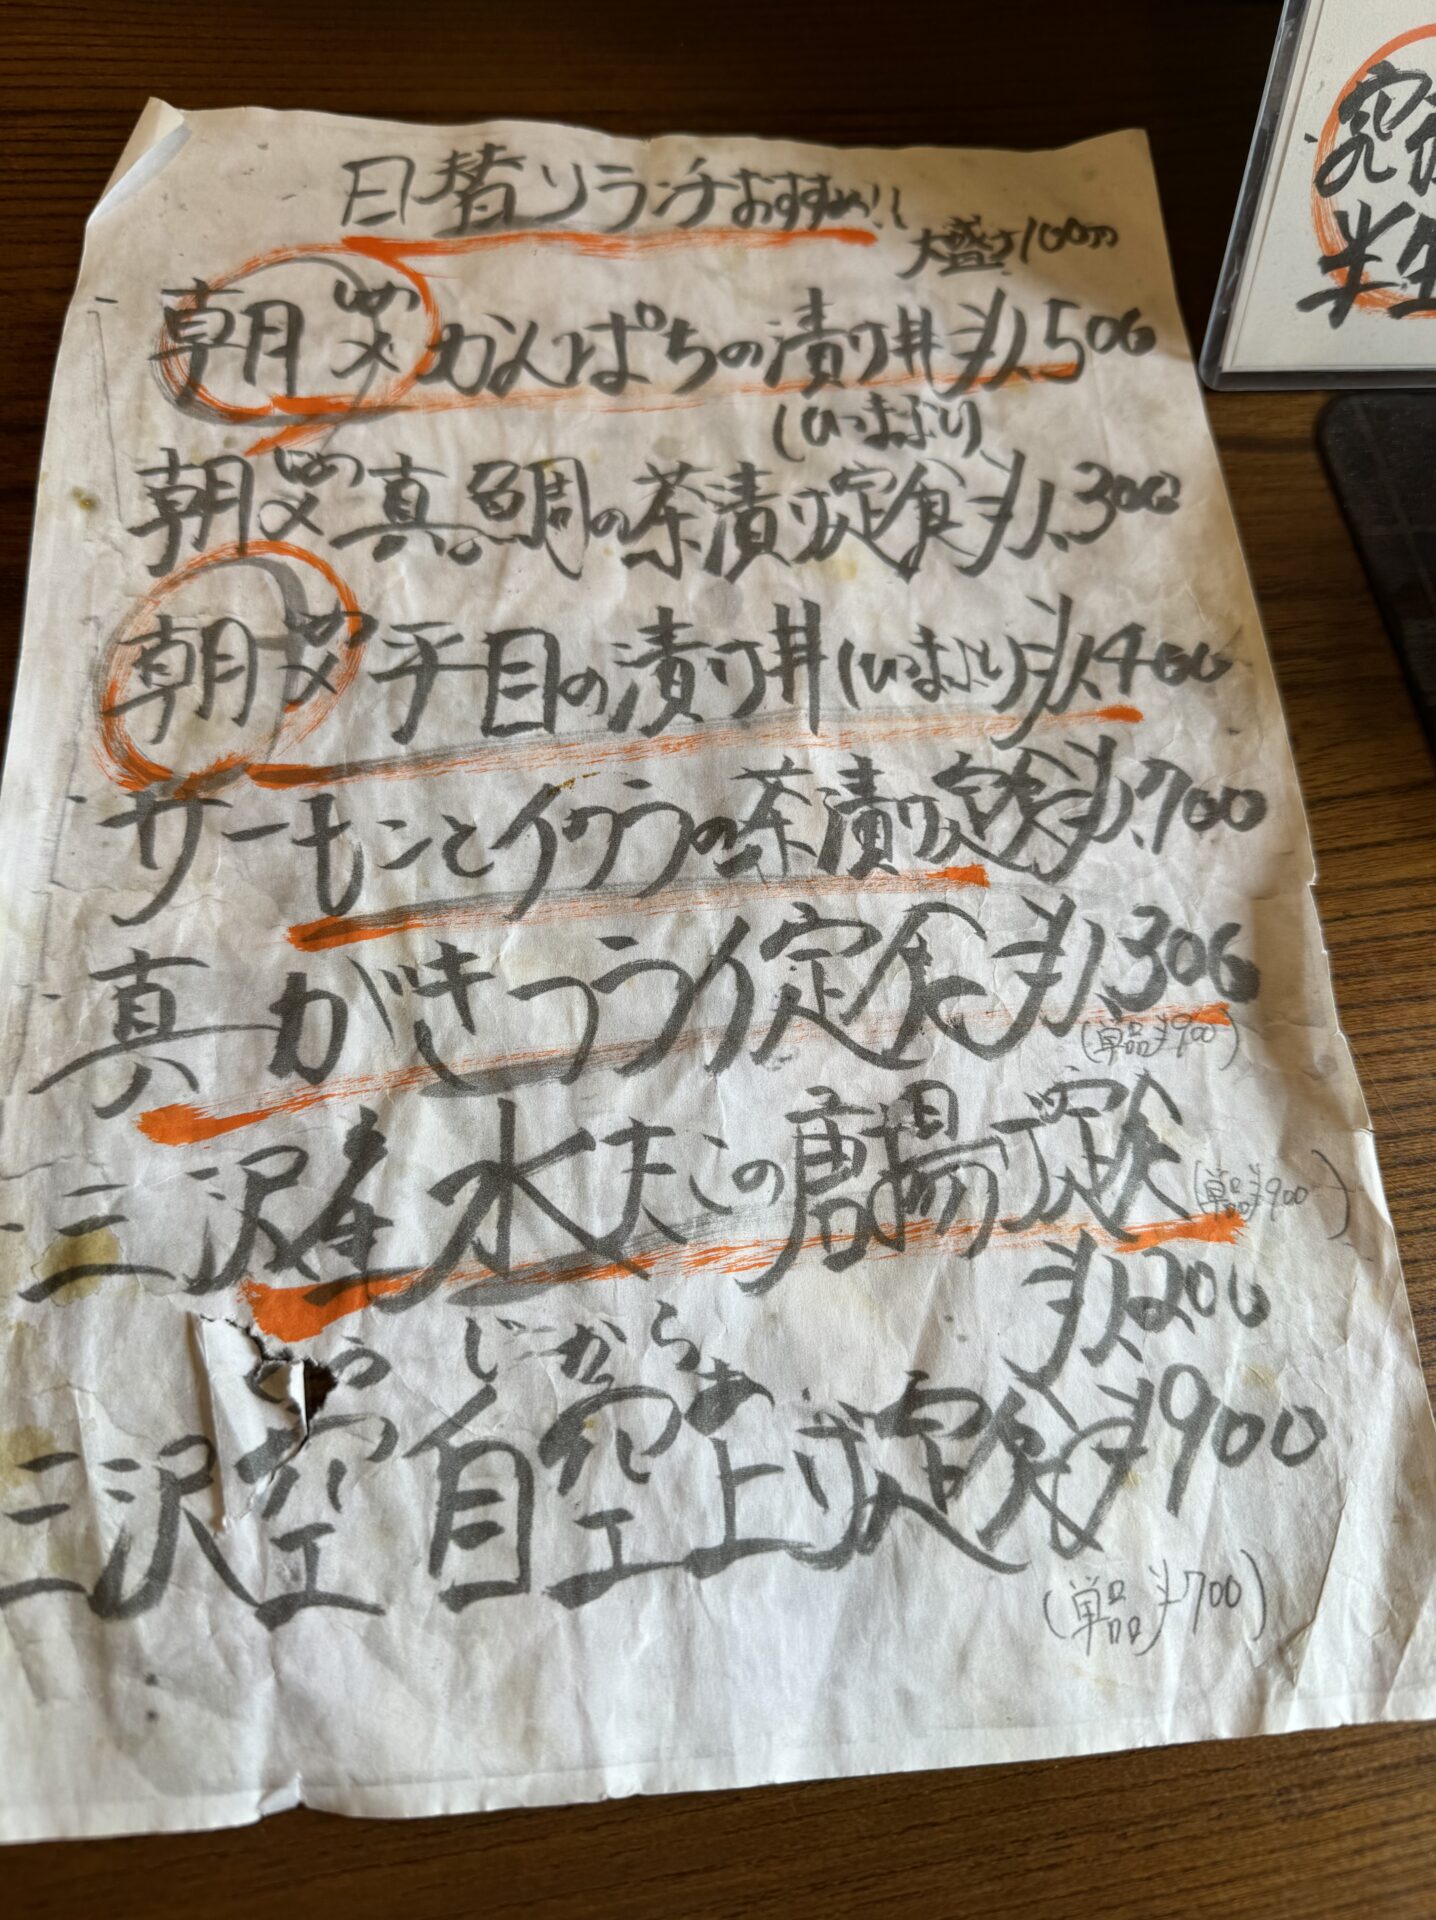 日替りランチおすすめ!!
大盛り100円
朝〆しめかんぱちの漬け丼¥1,500
(ひつまぶし)
朝〆しめ真鯛の茶漬け定食¥1,300
朝〆しめ平目の漬け丼(ひつまぶし)¥1,400
サーモンとイクラの茶漬け定食¥1,700
真がきフライ定食¥1,300
(単品¥900)
三沢産水たこの唐揚げ定食
(単品¥900)
¥1,200
くう じーから あ
三沢空自空上げ定食¥900
(単品¥700)